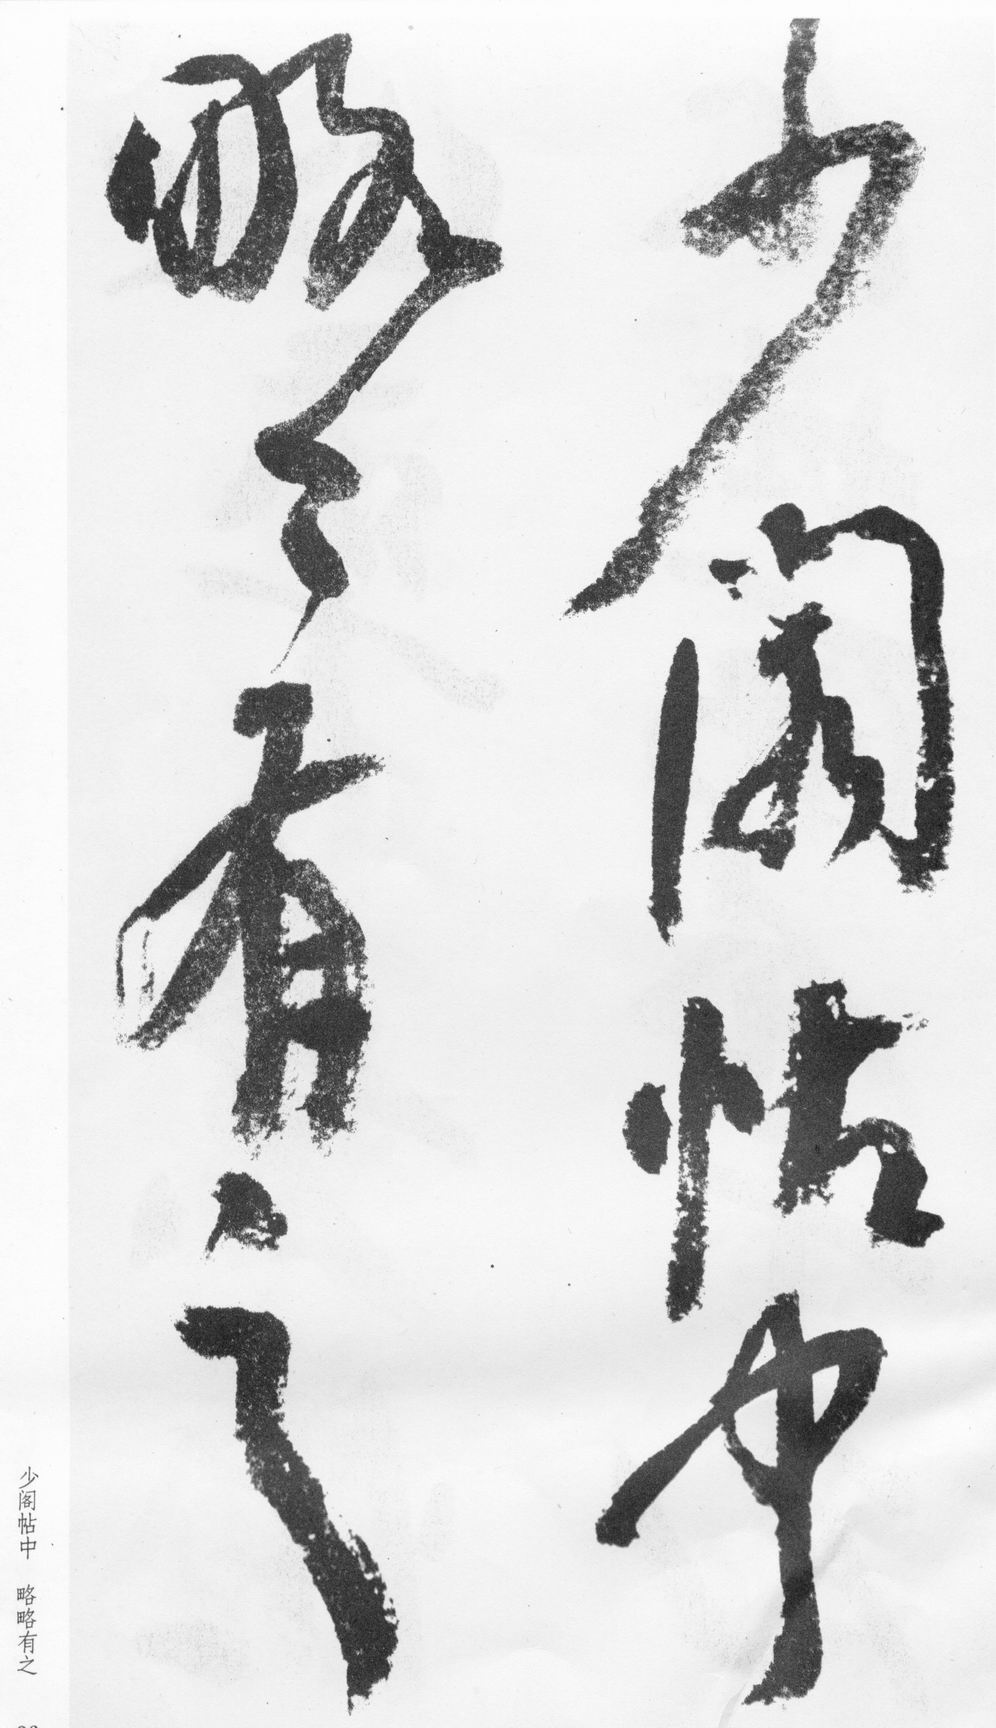 少阁帖中
略々有之
少阁帖中 略略有之